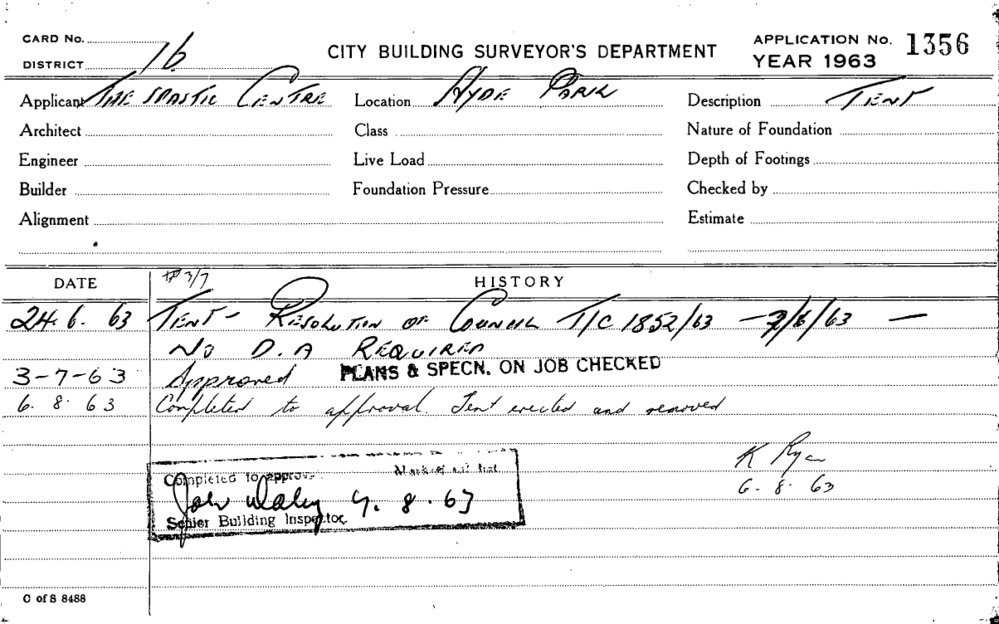 CARD No.
DISTRICT 16
CITY BUILDING SURVEYOR'S DEPARTMENT
APPLICATION No. 1356
YEAR 1963
Applicant THE SPASTIC CENTRE Location HYDE PARK Description TENT
Architect Class Nature of Foundation
Engineer Live Load Depth of Footings
Builder Foundation Pressure Checked by
Alignment Estimate
DATE 3/7 HISTORY
24.6.63 TENT - RESOLUTION OF COUNCIL T/C 1852/63 - /6/63 -
NO D.A REQUIRED
3-7-63 Approved PLANS & SPECN. ON JOB CHECKED
6.8.63 Completed to approval. Tent erected and removed
K Ryan
6.8.63
Completed to approval
John Daley 9.8.63
Senior Building Inspector.
C of S 8488